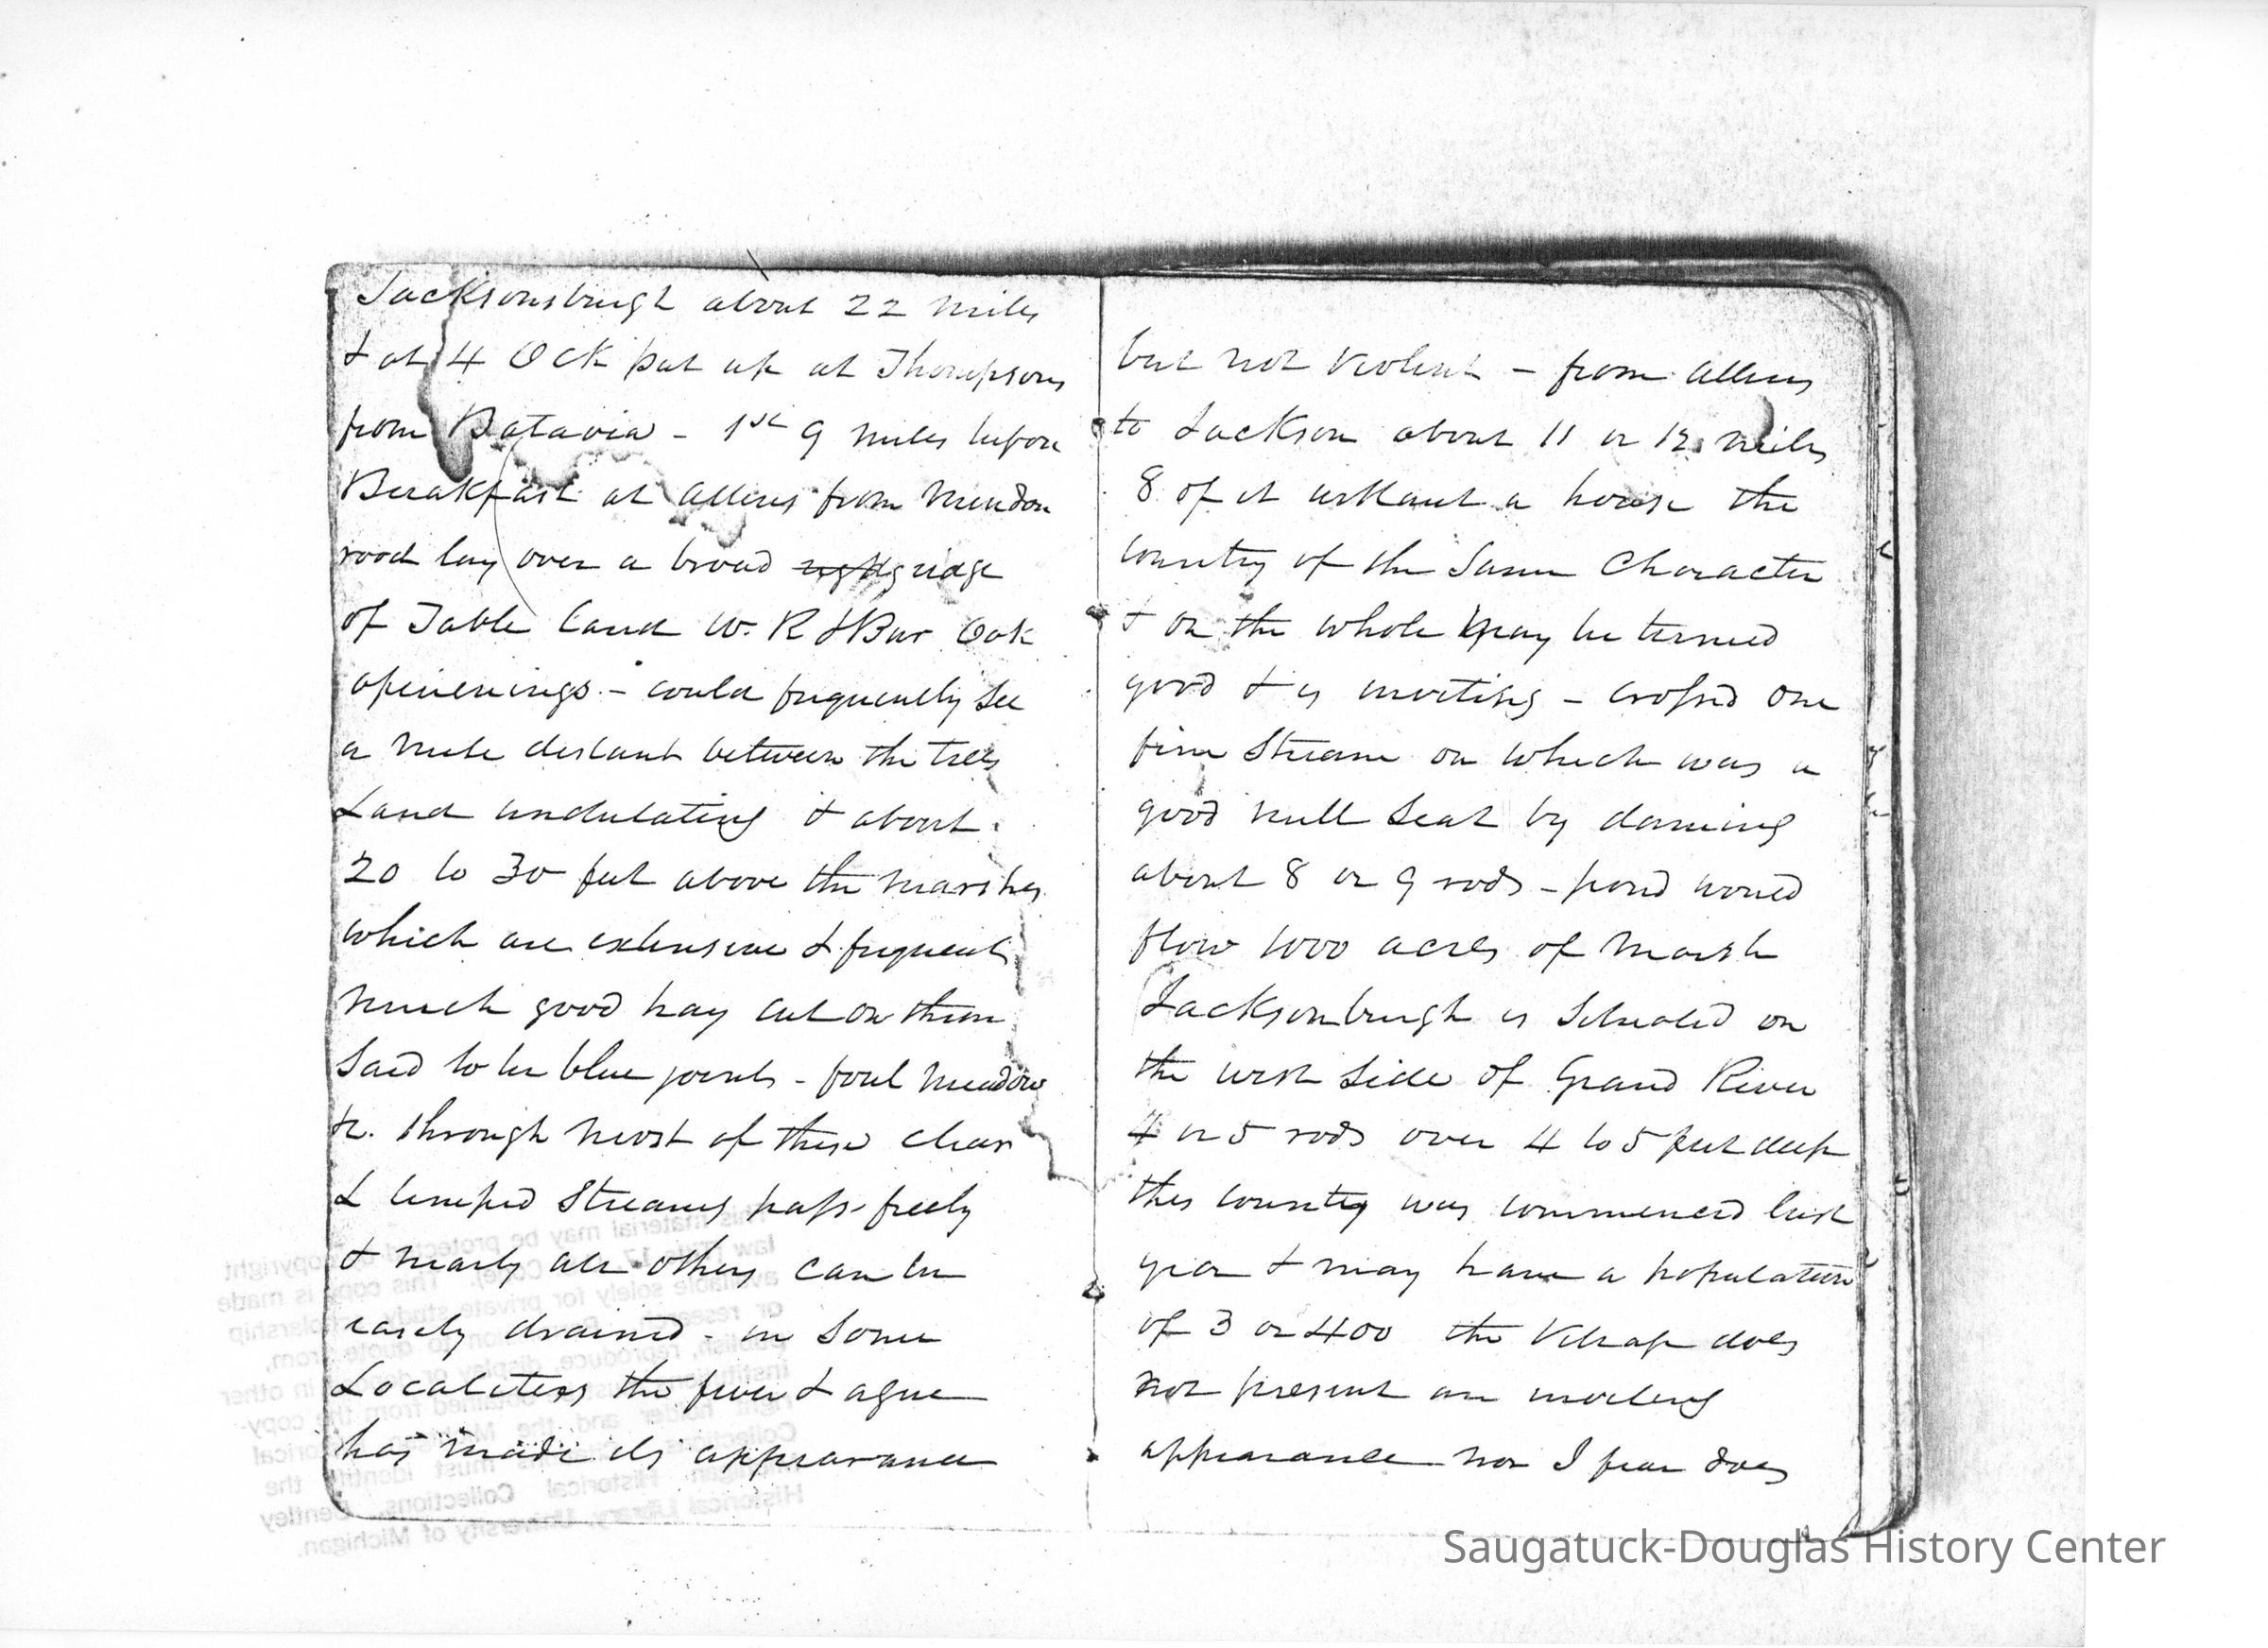 Jacksonsburgh about 22 miles
& at 4 OCK put up at Thompsons
from Batavia - 1st 9 miles before
Breakfast at Allens from Mendon
road lay over a broad ridge
of Table Land W. R & Bur Oak
openenings - could frequently See
a mile distant between the trees
Land undulating & about
20 to 30 feet above the marshes
which are extensive & frequent
much good hay cut on them
Said to be blue joints - foul meadow
&c. through most of these clear
& limpid Streams pass freely
& nearly all others can be
easily drained - in Some
Localities the fever & ague
has made its appearance
but not violent - from Allens
to Jackson about 11 or 12 miles
8 of it without a house the
country of the Same Character
& on the whole may be termed
good & is inviting - crossed one
fine Stream on which was a
good mill Seat by daming
about 8 or 9 rods - pond would
flow 1000 acres of Marsh
Jacksonburgh is Situated on
the west Side of Grand River
4 or 5 rods over 4 to 5 feet deep
this county was commenced last
year & may have a population
of 3 or 400 the Village does
not present an inviting
appearance nor I fear does
This material may be protected by copyright
law
available solely for private study, scholarship
or research.
publish, reproduce,
Historical Collections, Bentley
Historical Library, University of Michigan.
Saugatuck-Douglas History Center